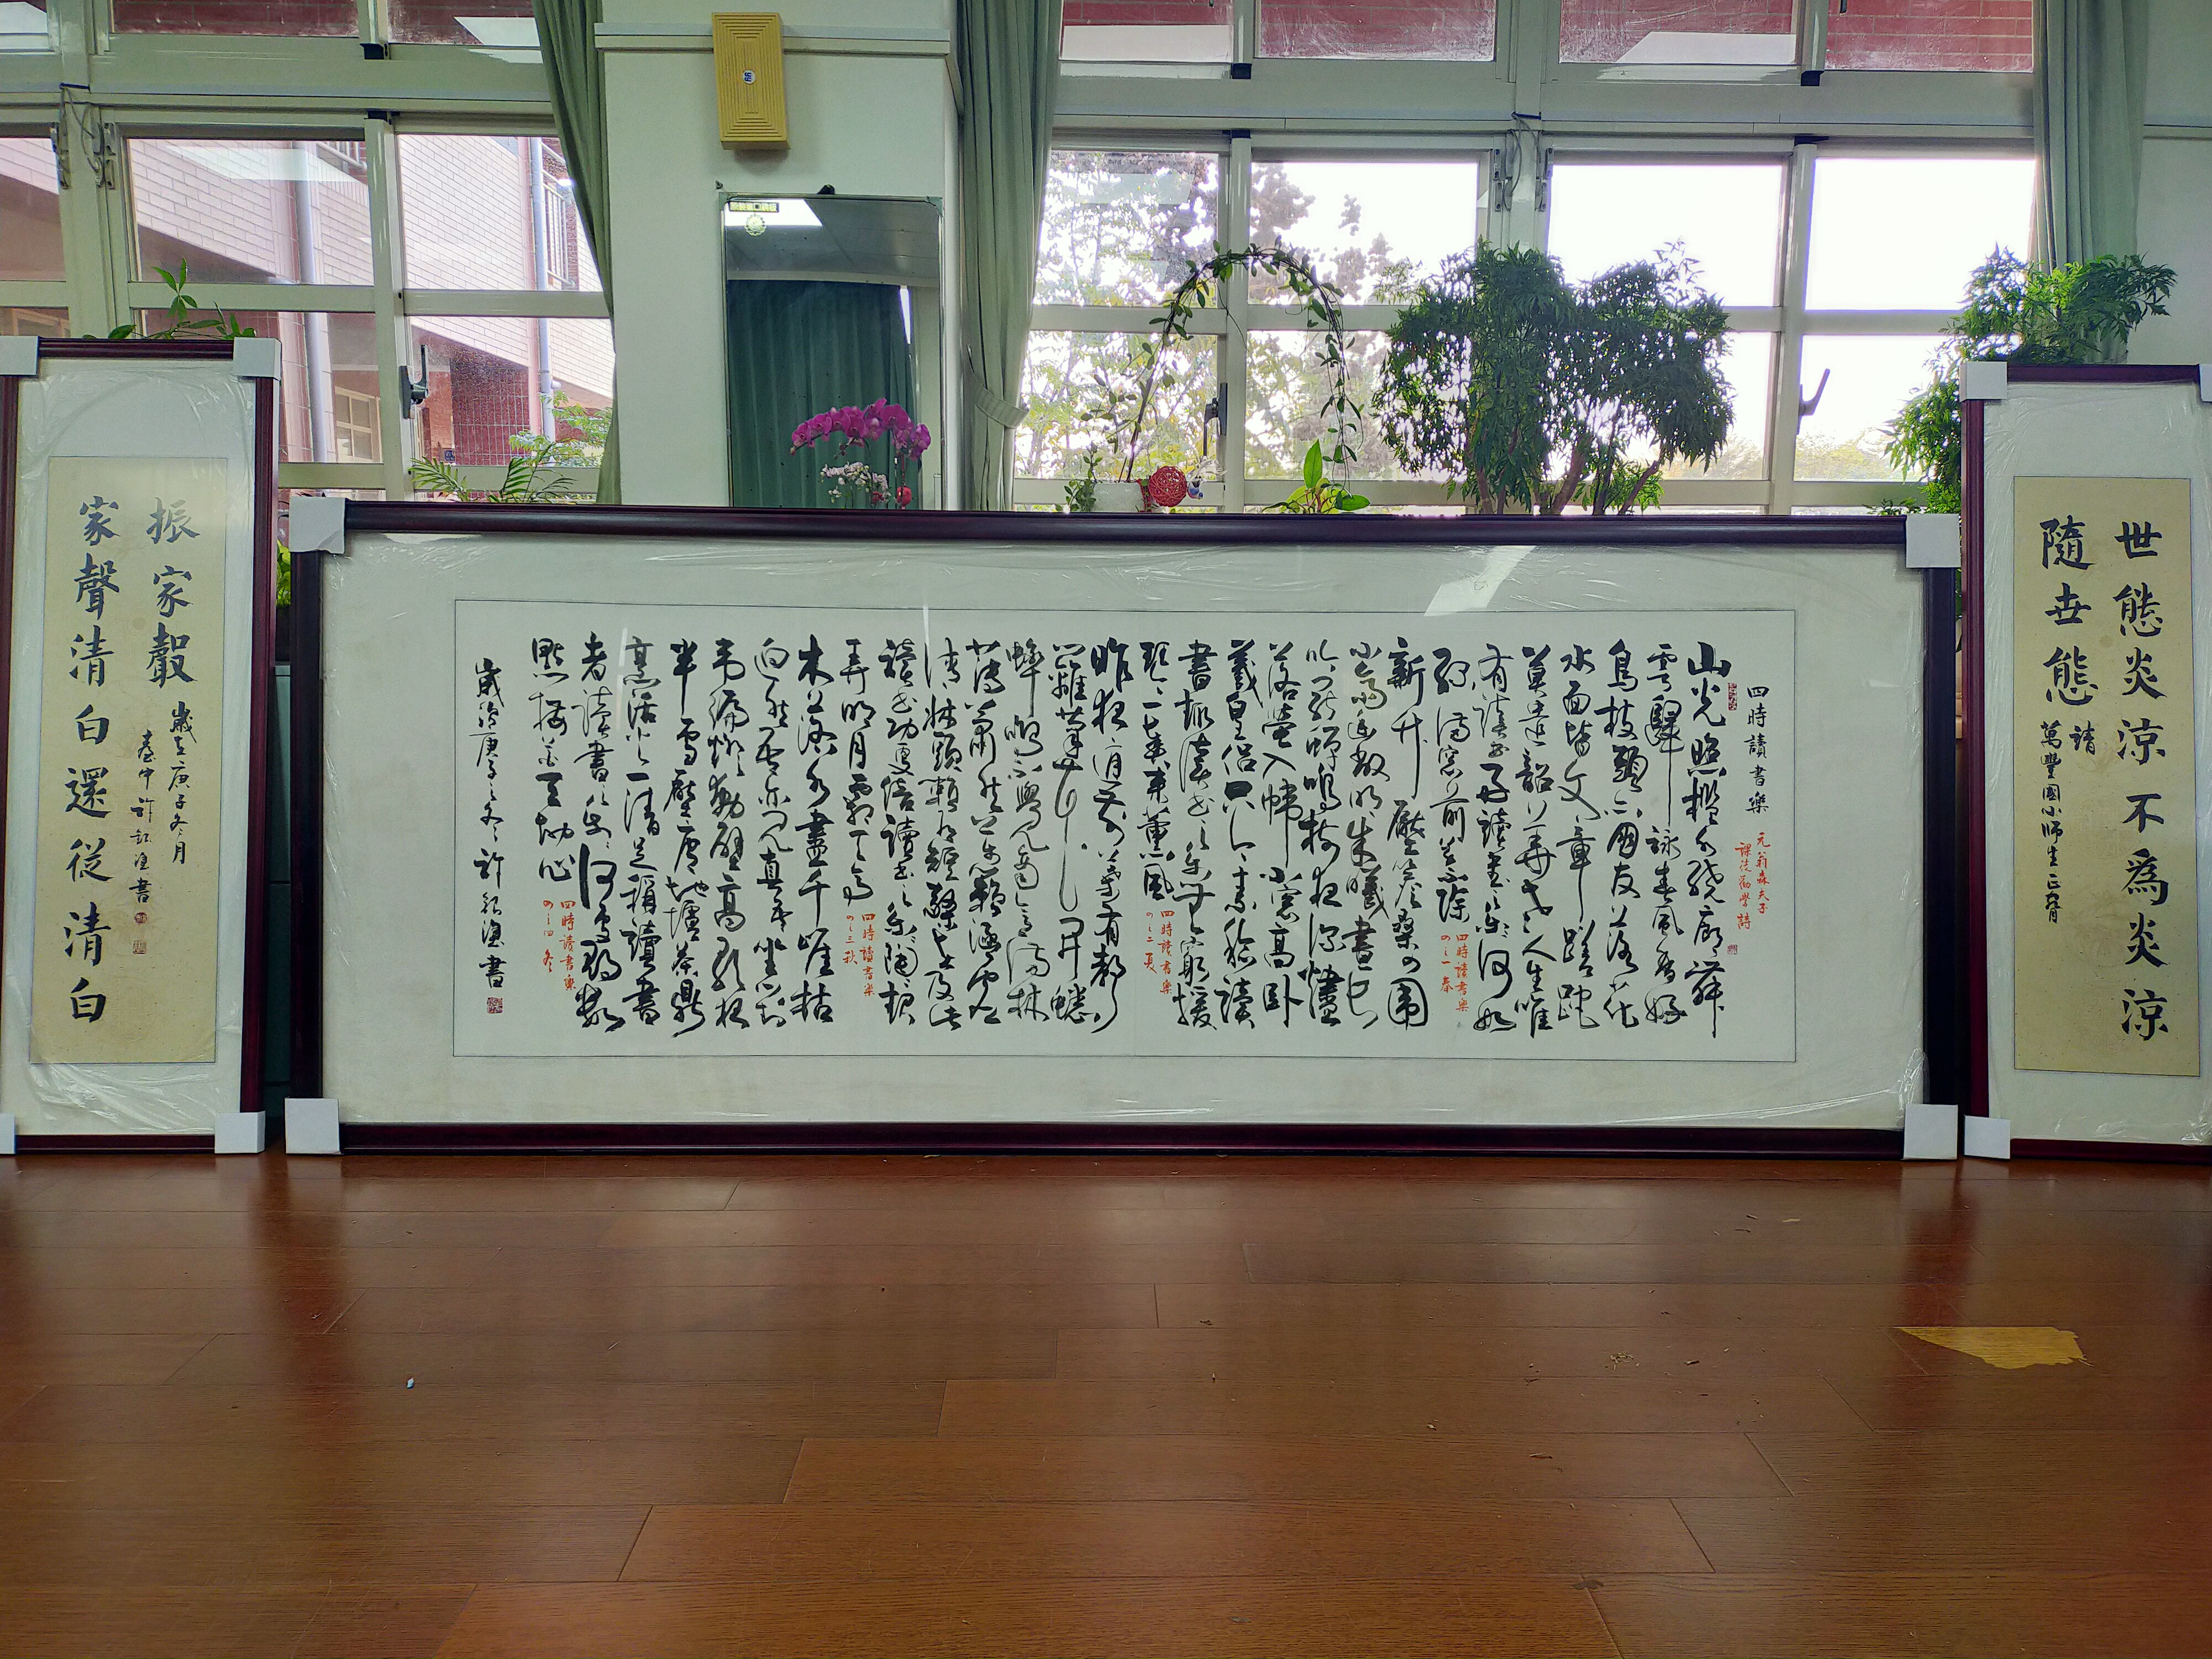 世態炎涼不為炎涼
隨世態
請
萬豐國小師生正
四時讀書樂
元翁森夫子
課徒勸學詩
山光照檻水繞廊舞
雩歸詠春風香好
鳥枝頭亦朋友落花
水面皆文章蹉跎
莫遣韶光老人生唯
有讀書好讀書之樂樂何如
綠滿窓前草不除
四時讀書樂
四之一春
新竹壓簷桑四圍
小齋幽敞明朱曦晝長
吟罷蟬鳴樹夜深燼
落螢入幃北窓高臥
羲皇侶只因素稔讀
書趣讀書之樂樂無窮援
琴一奏來薰風
四時讀書樂
四之二夏
昨夜庭前葉有聲
籬荳花開蟋
蟀鳴不覺商意滿林
薄蕭然萬籟涵虛
清近牀賴有短檠在及此
讀書功更倍讀書之樂樂陶陶起
弄明月霜天高
四時讀書樂
四之三秋
木落水盡千崖枯
迥然吾亦見真吾坐對
韋編燈動壁高歌夜
半雪壓廬地爐茶鼎
烹活火一清足稱讀書
者讀書之樂何處尋數
點梅花天地心
四時讀書樂
四之四冬
歲次庚子之冬 許 書
振家聲
歲在庚子冬月
臺中許 書
家聲清白還從清白